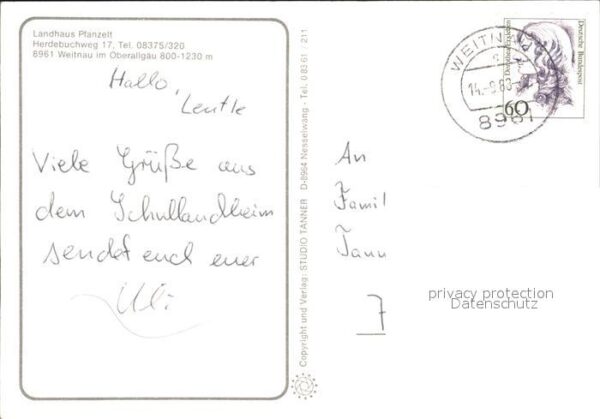 Landhaus Pfanzelt
Herdebuchweg 17, Tel. 08375/320
8961 Weitnau im Oberallgäu 800-1230 m
Hallo,
Leutle
Viele Grüße aus
dem Schullandheim
sendet euch euer
Uli
Copyright und Verlag: STUDIO TANNER D-8964 Nesselwang - Tel. 0 83 61 / 211
An
Famil
Tann
7
WEITNAU
8961
60
Deutsche Bundespost
privacy protection
Datenschutz